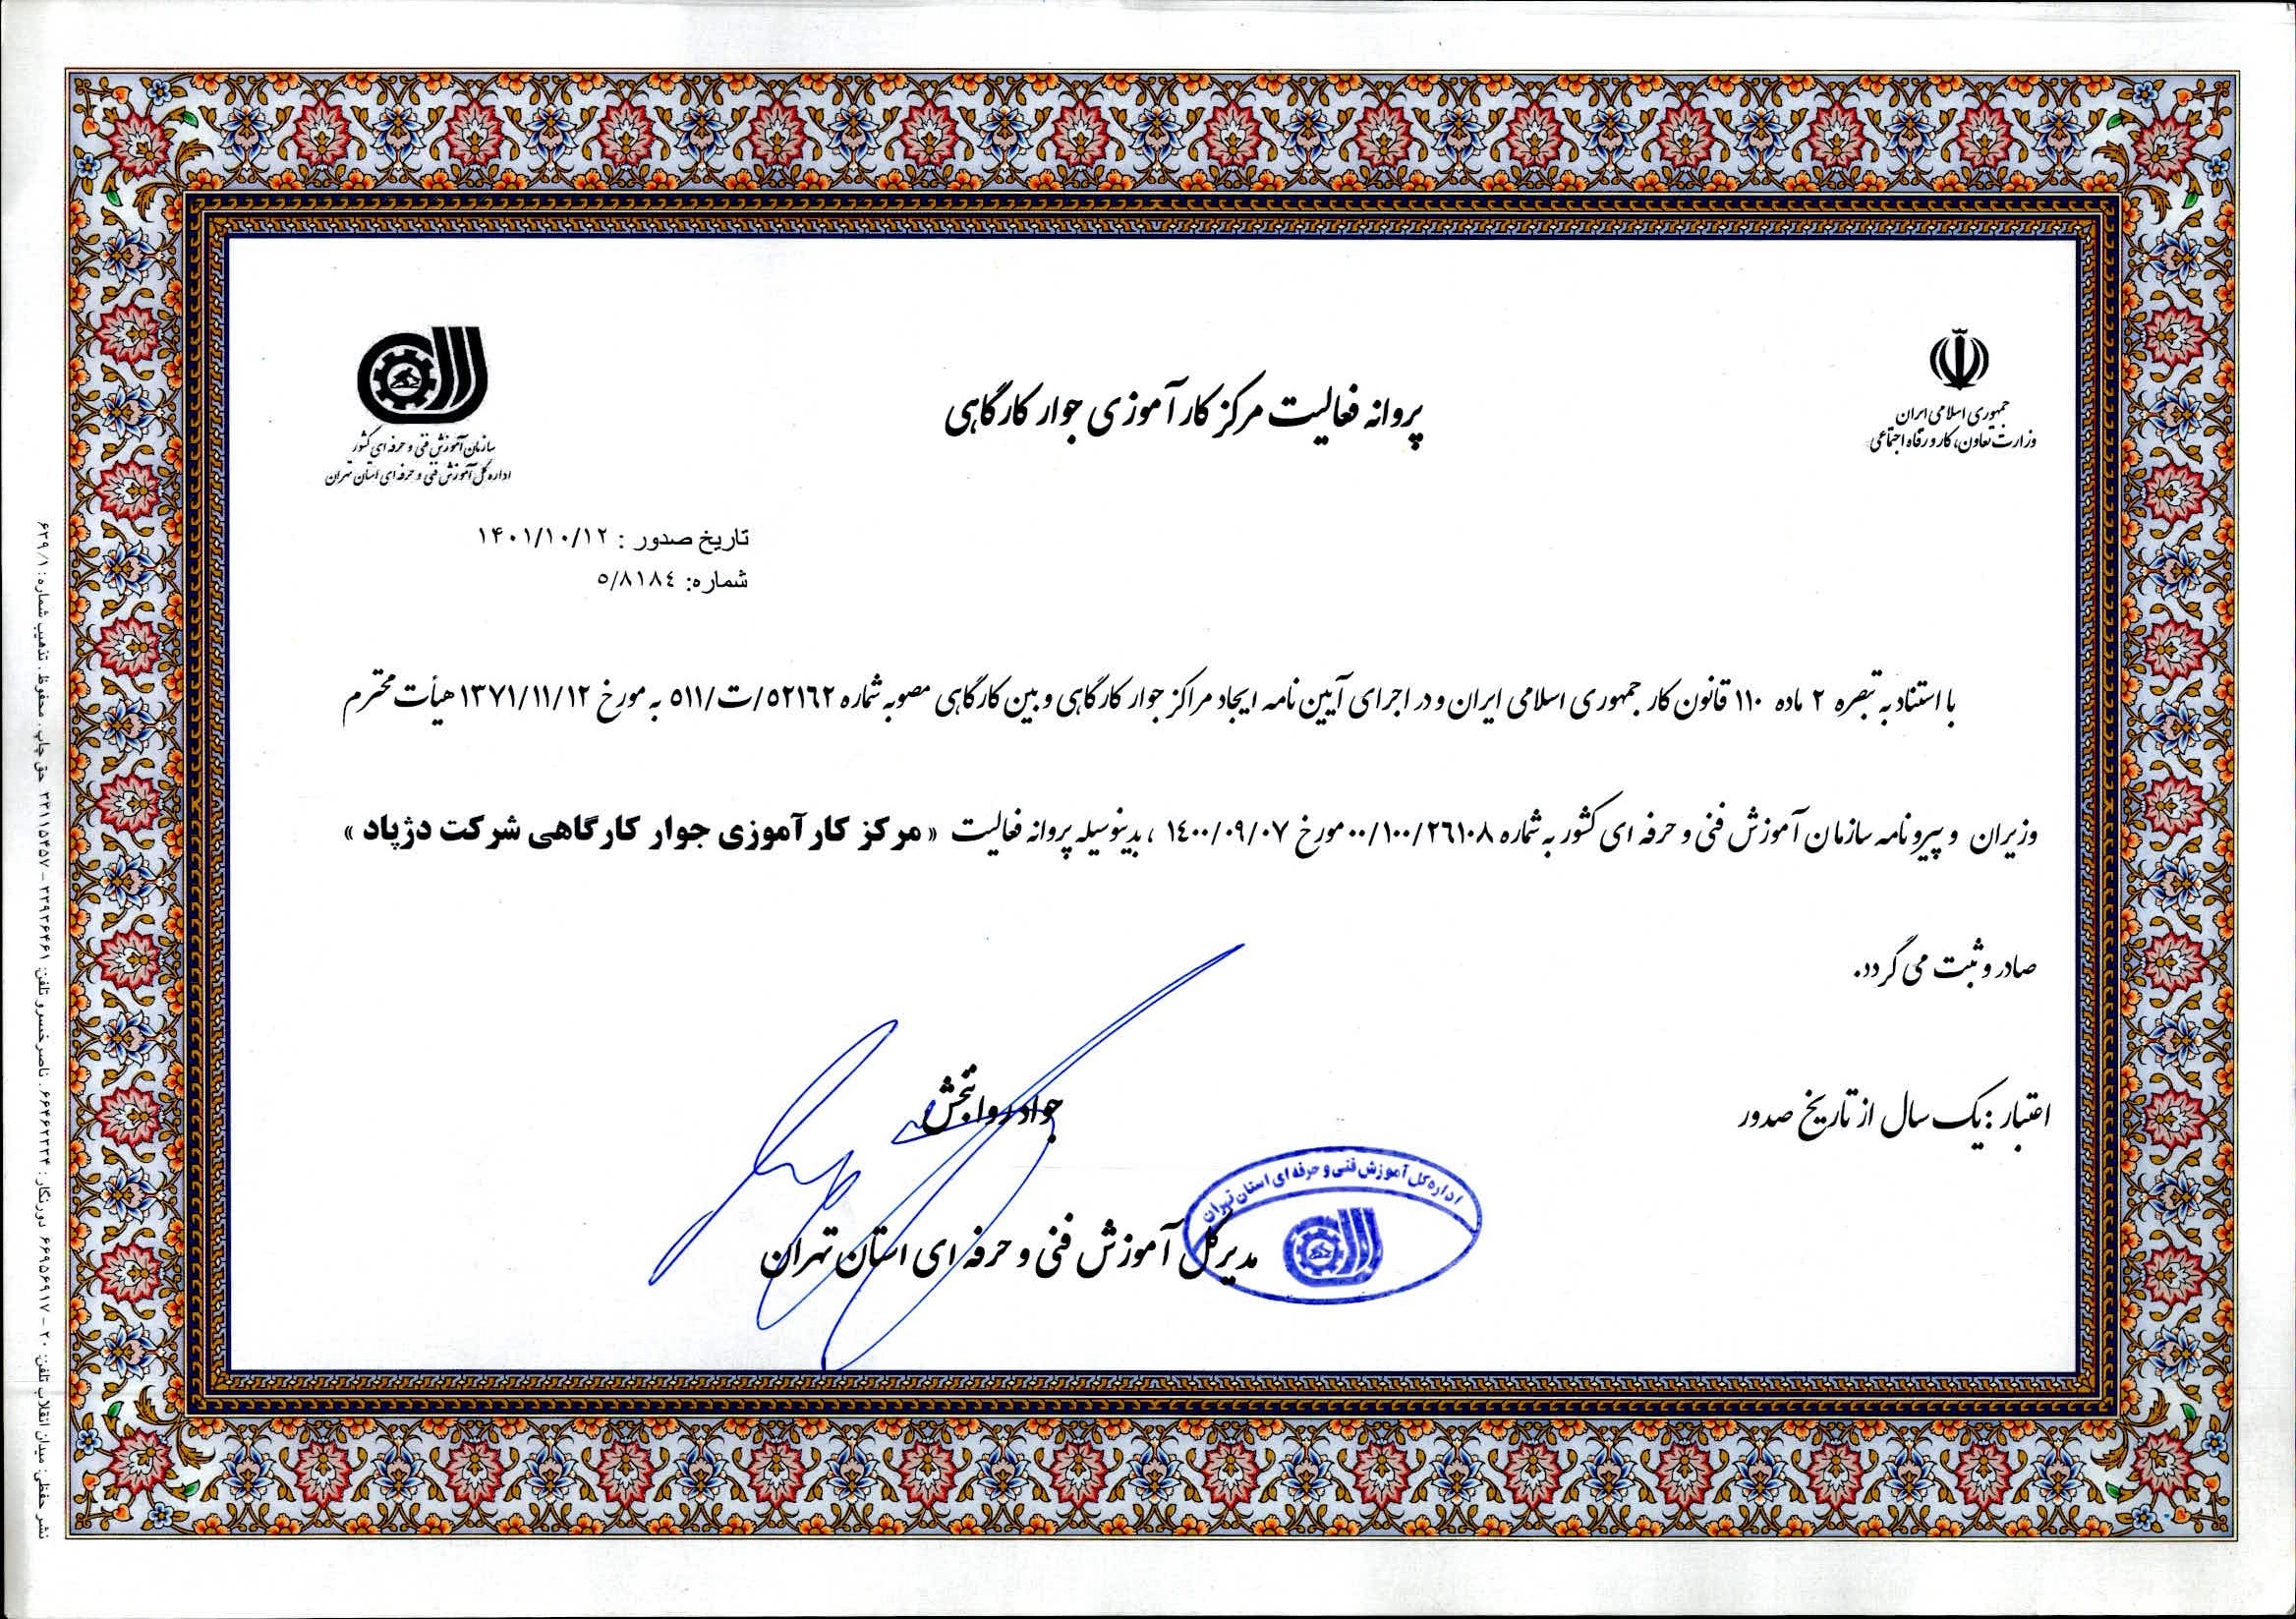 جمهوری اسلامی ایران
وزارت تعاون، کار و رفاه اجتماعی
پروانه فعالیت مرکز کارآموزی جوار کارگاهی
سازمان آموزش فنی و حرفه ای کشور
اداره کل آموزش فنی و حرفه ای استان تهران
تاریخ صدور : ۱۴۰۱/۱۰/۱۲
شماره: ٥/٨١٨٤
با استناد به تبصره ۲ ماده ۱۱۰ قانون کار جمهوری اسلامی ایران و در اجرای آیین نامه ایجاد مراکز جوار کارگاهی و بین کارگاهی مصوبه شماره ٥٢١٦٢/ت/٥١١ به مورخ ۱۳۷۱/۱۱/۱۲ هیأت محترم
وزیران و پیرو نامه سازمان آموزش فنی و حرفه ای کشور به شماره ٠٠/١٠٠/٢٦١٠٨ مورخ ١٤٠٠/٠٩/٠٧ ، بدینوسیله پروانه فعالیت « مرکز کارآموزی جوار کارگاهی شرکت دژپاد »
صادر و ثبت می گردد.
اعتبار : یک سال از تاریخ صدور
جواد روانبخش
مدیرکل آموزش فنی و حرفه ای استان تهران
اداره کل آموزش فنی و حرفه ای استان تهران
نشر حفظی: میدان انقلاب تلفن: ۲۰ - ۶۶۹۵۶۹۱۷ دورنگار: ۶۶۴۶۲۲۳۴ . ناصر خسرو تلفن: ۳۳۹۳۶۴۶۱ - ۳۳۱۱۵۴۵۷ حق چاپ . محفوظ . تذهیب شماره: ۶۲۹/۱